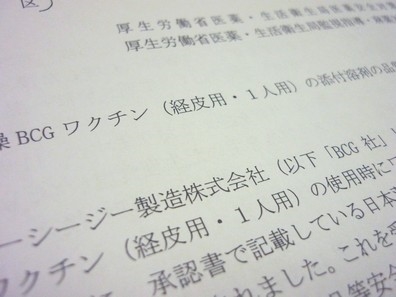 区）
厚生労働省医薬・生活衛生局医薬安全対
厚生労働省医薬・生活衛生局監視指導・麻薬
燥 BCG ワクチン（経皮用・１人用）の添付溶剤の品質
ーシージー製造株式会社（以下「BCG 社」
ワクチン（経皮用・１人用）の使用時に
承認書で記載している日本
されました。これを受
等安全